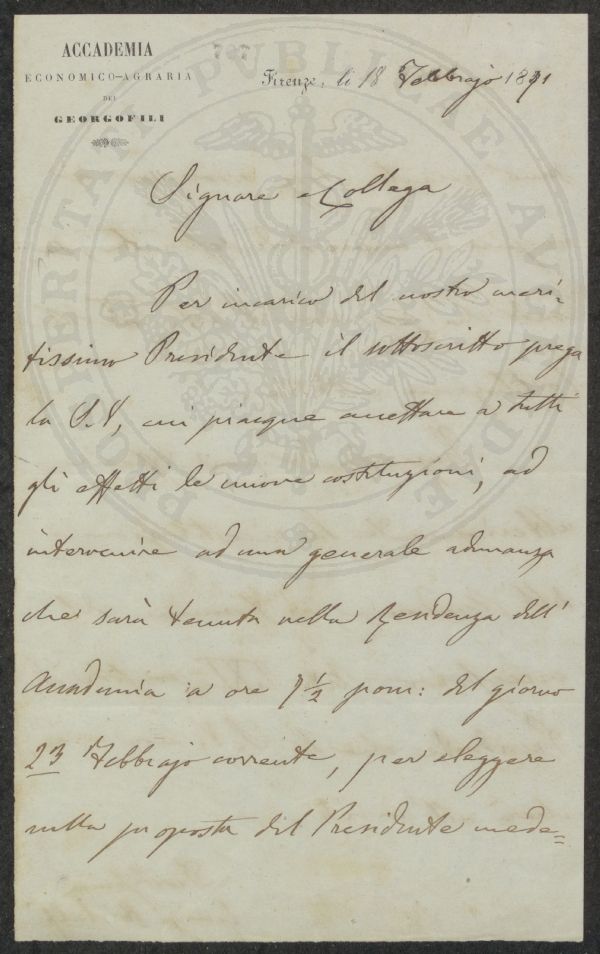 ACCADEMIA
ECONOMICO-AGRARIA
DEI
GEORGOFILI
Firenze, li 18 Febbrajo 1871
Signore e Collega
Per incarico del nostro meri-
tissimo Presidente il sottoscritto prega
la S. V, cui piacque accettare a tutti
gli effetti le nuove costituzioni, ad
intervenire ad una generale adunanza
che sarà tenuta nella Residenza dell'
Accademia a ore 7 ½ pom: del giorno
23 Febbrajo corrente, per eleggere
sulla proposta del Presidente mede=
PROSPERITATI PUBLICAE AUGENDAE